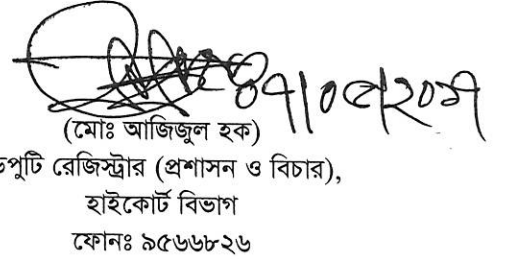 ০৭/০৫/২০১৭
(মোঃ আজিজুল হক)
ডেপুটি রেজিস্ট্রার (প্রশাসন ও বিচার),
হাইকোর্ট বিভাগ
ফোনঃ ৯৫৬৬৮২৬